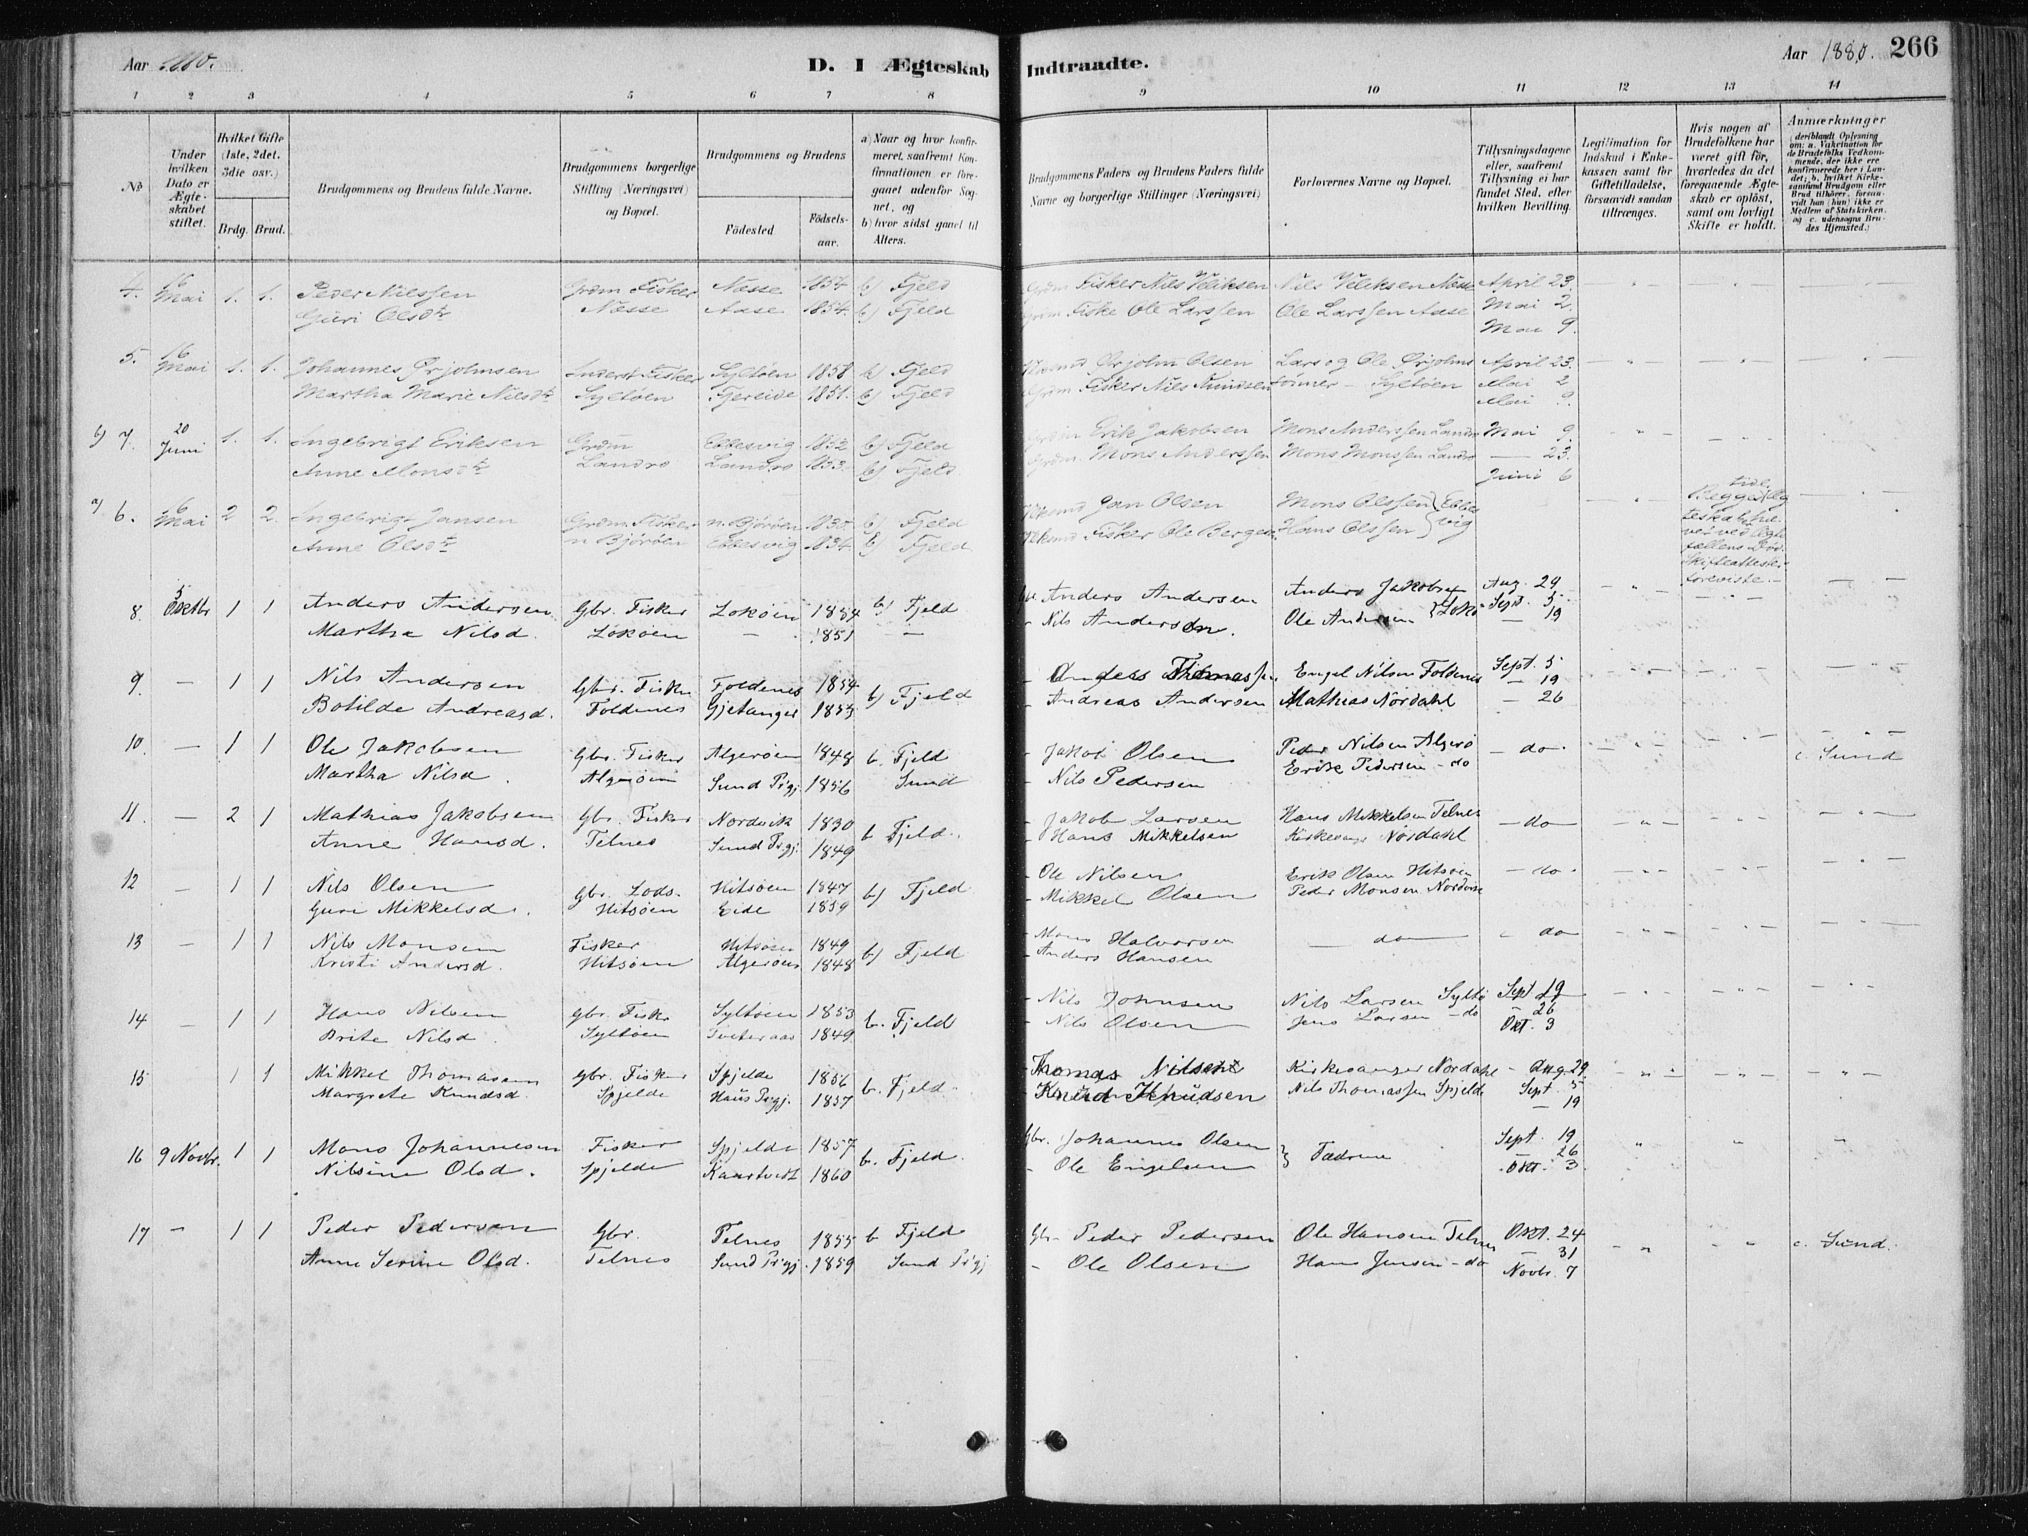 Aar 1880.
D. I Ægteskab Indtraadte.
Aar 1880. 266
1 2 3 4 5 6 7 8 9 10 11 12 13 14
No
Under hvilken Dato er Ægteskabet stiftet.
Hvilket Gifte (1ste, 2det. 3die osv.)
Brdg. Brud.
Brudgommens og Brudens fulde Navne.
Brudgommens borgerlige Stilling (Næringsvei) og Bopæl.
Brudgommens og Brudens
Födested
Födsels-aar.
a) Naar og hvor konfirmeret, saafremt Konfirmationen er foregaaet udenfor Sognet, og b) hvor sidst gaaet til Alters.
Brudgommens Faders og Brudens Faders fulde Navne og borgerlige Stillinger (Næringsvei)
Forlovernes Navne og Bopæl.
Tillysningsdagene eller, saafremt Tillysning ei har fundet Sted, efter hvilken Bevilling.
Legitimation for Indskud i Enkekassen samt for Giftetilladelse, forsaavidt saadan tiltrænges.
Hvis nogen af Brudefolkene har været gift før, hvorledes da det foregaaende Ægteskab er oplöst, samt om lovligt Skifte er holdt.
Anmærkninger
4. 16 Mai 1. 1. Peder Nilssen Grdm Fisker Næsse 1854 b) Fjeld Grdm Fisker Nils Veliksen Nils Veliksen Næsse April 23.
Guri Olsdtr Næsse Aase 1854. b) Fjeld Grdm Fisker Ole Larssen Ole Larssen Aase Mai 2.
Mai 9.
5. 16 Mai 1. 1. Johannes Ørjohnsen Inderst Fisker Syltöen 1858 b) Fjeld Ørjohn Olsen Lars og Ole Ørjohns April 23.
Martha Marie Nilsdtr Syltöen Fjereide 1851. b) Fjeld Grdm Fisker Nils Knudsen sönner - Syltöen Mai 2
Mai 9.
b) 7. 20 Juni 1. 1. Ingebrigt Eriksen Grdm Ebbesvig 1852 b) Fjeld Grdm Erik Jakobsen Mons Anderssen Landro Mai 9.
Anne Monsdtr Landro Landro 1853. b) Fjeld Grdm. Mons Anderssen Mons Monssen Landro — 23.
Juni 6
a) 6. 16 Mai 2 2. Ingebrigt Jansen Grdm. Fisker n. Björöen 1830. b) Fjeld Jan Olsen Mons Olssen } Ebbe Begges
Anne Olsdtr n Björöen Ebbesvig 1834 b) Fjeld Fisker Ole Berge Hans Olssen } vig
8. 5 Oktbr 1 1 Anders Andersen Gbr. Fisker Lokøen 1854 b) Fjeld Gbr Anders Andersen Anders Jakobsen Aug. 29
Martha Nilsd. Lokøen — 1851 — - Nils Andersen. Ole Andersen } Lokø Sept. 5.
— 19
9. — 1 1 Nils Andersen Gbr. Fisker Foldenes 1854 b) Fjeld Engel Nilsen Foldenes Sept. 5
Botilde Andreasd. Foldenes Gjetanger 1853 - Andreas Andersen Mathias Nordahl — 19
— 26
10. — 1 1 Ole Jakobsen Gbr. Fisker Algerøen 1848 b. Fjeld - Jakob Olsen Peder Nilsen Algerø - do - c. Sund
Martha Nilsd. Algerøen Sund Prgj. 1856 Sund - Nils Pedersen Erik Pedersen - do
11. — 2 1 Mathias Jakobsen Gbr. Fisker Nordvik 1830 b Fjeld - Jakob Larsen Hans Mikkelsen Telnes — do —
Anne Hansd. Telnes Sund Prgj. 1849 - Hans Mikkelsen Kirkesanger Nordahl
12 — 1 1 Nils Olsen Gbr. Lods. Hitsøen 1847 b) Fjeld - Ole Nilsen Erik Olsen Hitsøen - do -
Guri Mikkelsd. Hitsøen Eide 1859 - Mikkel Olsen Peder Monsen Nordvik
13 — 1 1 Nils Monsen Fisker Hitsøen 1849 b) Fjeld - Mons Halvorsen — do — - do
Kristi Andersd. Hitsøen Algerøen 1848 - Anders Hansen
14 — 1 1 Hans Nilsen Gbr. Fisker Syltøen 1853 b. Fjeld - Nils Johnsen Nils Larsen Syltø Sept 19
Brite Nilsd. Syltøen Tveteraas 1849 - Nils Olsen Jens Larsen - do — 26
Okt. 3
15 1 1 Mikkel Thomassen Gbr. Fisker Spjelde 1856 b. Fjeld Thomas Nilsen Kirkesanger Nordahl - Aug 29.
Margrete Knudsd. Spjelde Haus Prgj. 1857 - Knud Knudsen Nils Thomassen Spjelde Sept. 5
— 19
16 9 Novbr. 1 1 Mons Johannesen Fisker Spjelde 1857 b. Fjeld Gbr. Johannes Olsen } Fædrene Sept. 19
Nilsine Olsd. Spjelde Kaartvedt 1860 - Ole Engelsen — 26
Okt. 3
17 — 1 1 Peder Pedersen Gbr. Telnes 1855 b Fjeld Gbr. Peder Pedersen Ole Hansen Telnes Okt. 24 c. Sund.
Anne Serine Olsd. Telnes Sund Prgj. 1859 Sund Prgj - Ole Olsen Hans Jensen - do — 31
Novbr. 7